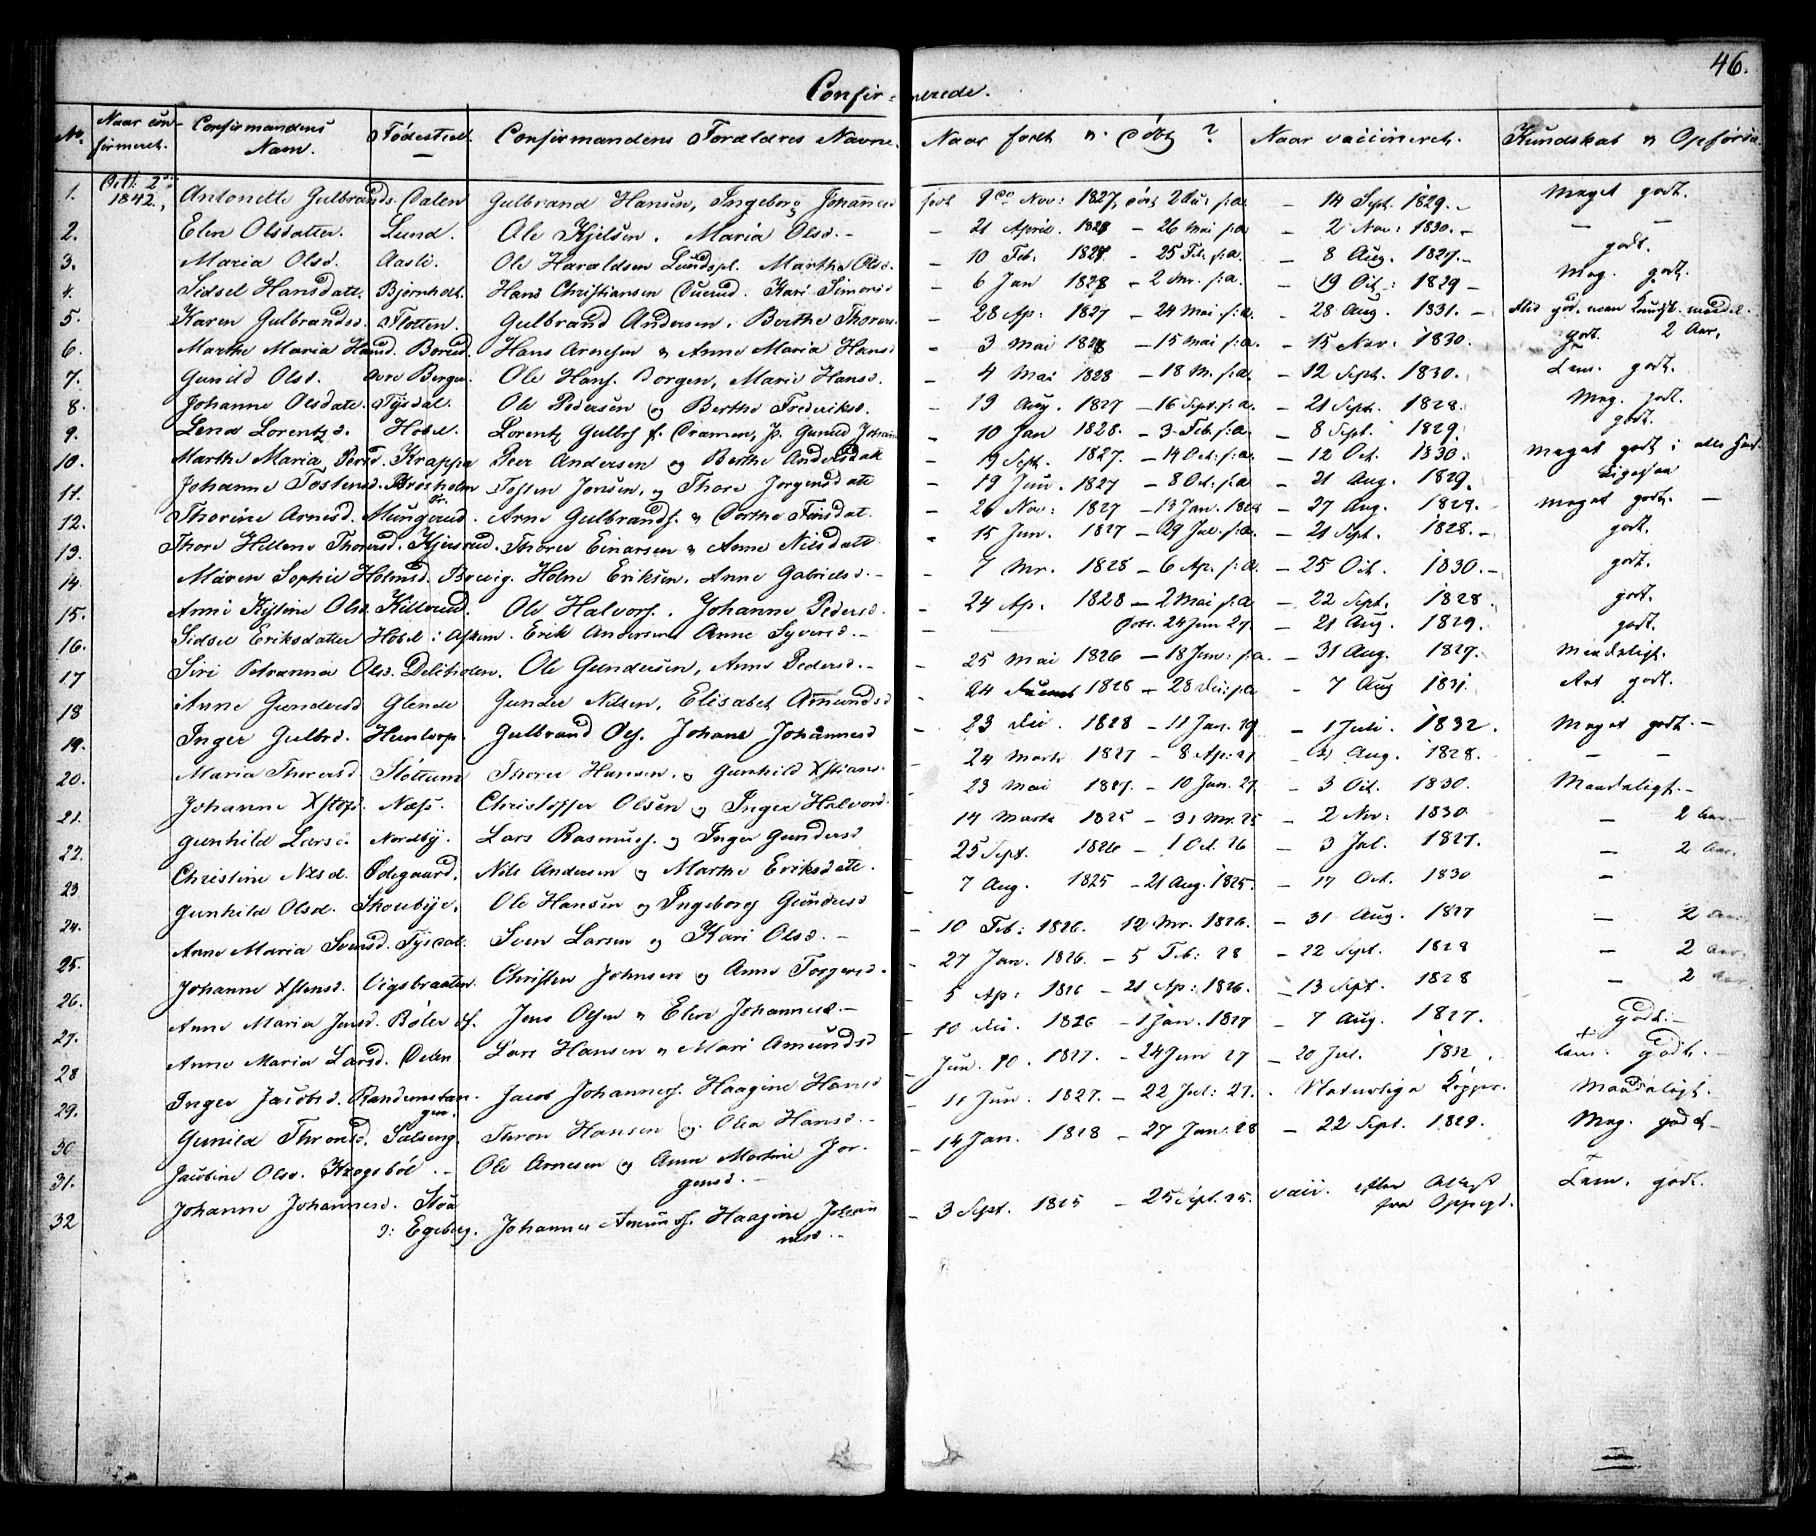 46.
Confirmerede.
No. Naar confirmeret. Confirmandens Navn. Fødested. Confirmandens Forældres Navne. Naar født og døbt? Naar vaccineret. Kundskab og Opførsel
1. Octb. 2den 1842. Antonette Gulbrandsd. Dalen Gulbrand Hansen, Ingeborg Johannesd født 9de Nov: 1827, døbt 2 Dec: s:a. – 14 Sept. 1829. – Meget godt.
2. Elen Olsdatter. Lund. Ole Kjelsen. Maria Olsd. – 21 April. 1828 – 26 Mai s:a – 2 Nov: 1830. – –
3. Maria Olsd. Aasli. Ole Haraldsen Lundspl. Marthe Olsd. – 10 Feb. 1827. – 25 Feb. s:a. – 8 Aug. 1827. – godt.
4. Sidsel Hansdatt. Bjørnholt. Hans Christiansen Kari Simensd – 6 Jan 1828 – 2 Mr. s:a. – 19 Oct: 1829 – Meg. godt.
5. Karen Gulbrandsd. Flotten. Gulbrand Andersen. Berthe Thoresd. – 28 Ap: 1827 – 24 Mai s:a. – 28 Aug. 1831. – Flid god. men Kundsk. maadel. 2 Aar.
6. Marthe Maria Hansd. Borud. Hans Arnesen og Anne Maria Hansd – 3 Mai 1828 – 15 Mai s:a. – 15 Nov: 1830. godt.
7. Gunild Olsd. Øvre Berger. Ole Hans. Borgen, Marie Hansd. – 4 Mai 1828 – 18 M. s:a. – 12 Sept. 1830. Tem. godt.
8. Johanne Olsdatt. Tysdal. Ole Pedersen og Berthe Frederiksd. – 19 Aug. 1827 – 16 Sept. s:a. – 21 Sept. 1828. Meg. godt.
9. Lena Lorentzd. Hobøl. Lorentz Gulbs f. Dramen, P. Gunild Johann – 10 Jan 1828. – 3 Feb. s:a. – 8 Sept. 1829. godt.
10. Marthe Maria Persd. Krappa Peer Andersen og Berthe Andersdatt – 19 Sept. 1827. – 14 Oct: s:a. – 12 Oct. 1830. Meget godt i alle Hens.
11. Johanne Tostensd. Brosholm Tosten Jonsen, og Thore Jørgensdatt – 19 Jun. 1827 – 8 Oct. s:a – 21 Aug. 1829. Ligesaa
12. Thorine Arnesd. Mungerud. Arne Gulbrands. og Dorthe Finsdat. – 26 Nov: 1827 – 13 Jan. 1828 – 27 Aug. 1829. Meget godt. –
13. Thore Hellene Thoresd. Kjersrud. Thorer Einarsen og Anne Nilsdatt – 15 Jun. 1827 – 29 Jul. s:a. – 21 Sept. 1828. – godt.
14. Maren Sophie Holmsd. Brevig. Holm Eriksen. Anne Gabrielsd. – 7 Mr. 1828 – 6 Ap. s:a. – 25 Oct. 1830. – godt.
15. Anne Kistine Olsd. Killerud. Ole Halvors. Johanne Pedersd. – 24 Ap. 1828 – 2 Mai s:a – 22 Sept. 1828. godt.
16. Sidsel Eriksdatter Hobøl i Askim. Erik Andersen Anne Syversd. – – døbt. 24 Jun 27. – 21 Aug. 1829. godt.
17 Siri Petranna Olsd. Ole Gundersen, Anne Pedersd. – 25 Mai 1826 – 18 Jun: s:a. – 31 Aug. 1827. Maadeligt.
18 Anne Gundersd Glende Gunder Nilsen, Elisabet Amundsd – 24 1828 – 28 Dec: s:a – 7 Aug 1831. Art godt.
19. Inger Gulbrd. Huntorp. Gulbrand Ols. Johane Johannesd – 23 Dec 1828 – 11 Jan. 29 – 1 Juli. 1832. Meget godt. –
20. Maria Thoresd Slottum Thorer Hansen. og Gunhild Xstians. – 24 Marts 1827 – 8 Ap: 27 – 21 Aug. 1828. – –
21. Johanne Xstofsd. Næss. Christoffer Olsen og Inger Halvord. – 23 Mai 1827. – 10 Jun. 27. – 3 Oct. 1830. Maadeligt. –
22. Gunhild Larsd. Nordby. Lars Rasmuss. og Inger Gundersd – 14 Marts 1825 – 31 Mr. 25 – 2 Nov: 1830. – 2 Aar. –
23 Christine Nilsd. Ødegaard. Nils Andersen og Marthe Eriksdatt. – 25 Sept. 1826 – 1 Oct. 26 – 3 Jul. 1827. – 2 Aar.
24. Gunhild Olsd. Skoubye. Ole Hansen og Ingeborg Gundersd – 7 Aug. 1825 – 21 Aug. 1825. – 17 Oct. 1830 –
25. Anne Maria Svensd. Tysdal. Sven Larsen og Kari Olsd. – – 10 Feb: 1826. 12 Mr. 1826. – 31 Aug. 1827 – 2 Aar
26. Johanne Xstensd. Vigsbraaten. Christen Johnsen og Anne Torgersd. – 27 Jan. 1826. – 5 Feb: 28 – 22 Sept. 1828 – 2 Aar.
27. Anne Maria Jensd. Bøler Jens Olsen og Elen Johannesd. – – 5 Ap: 1826 – 21 Ap: 1826. – 13 Sept. 1828 – 2 Aar.
28 Anne Maria Larsd. Dalen Lars Hansen og Mari Amundsd – 10 Dec. 1826 – 1 Jan. 1827 – 7 Aug. 1827. Godt. –
29. Inger Jacobsd. Randemstangen. Jacob Johanness. Haagine Hansd – Jun. 10. 1827. – 24 Jun 27 – 20 Jul. 1832. Tem: Godt. –
30 Gunild Thronsd. Solberg. Thron Hansen og Olea Hansd. – – 11 Jun. 1827. – 22 Jul: 27. – Naturlige Kopper. Maadeligt.
31. Jacobine Olsd. Krogsbøl. – Ole Arnesen og Anne Martine Jørgensd. – – 14 Jan. 1828 – 27 Jan. 28 – 22 Sept. 1829. Meg. godt –
32 Johanne Johannesd. Egeberg. Johannes Amunds. Haagine Johannesd. – – 3 Sept. 1825 – 25 Sept. 25. vacc. efter Attest fra Oppegd. Tem. godt.